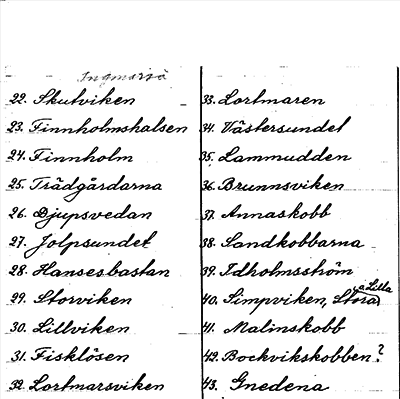 Ingmarsö
22. Skutviken
23. Finnholmshalsen
24. Finnholm
25. Trädgårdarna
26. Djupsvedan
27. Jolpsundet
28. Hansesbastan
29. Storviken
30. Lillviken
31. Fisklösen
32. Lortmarsviken
33. Lortmaren
34. Västersundet
35. Lammudden
36. Brunnsviken
37. Annaskobb
38. Sandkobbarna
39. Idholmsström
40. Simpviken, Stora o Lilla
41. Malinskobb
42. Bockvikskobben?
43. Gnedena